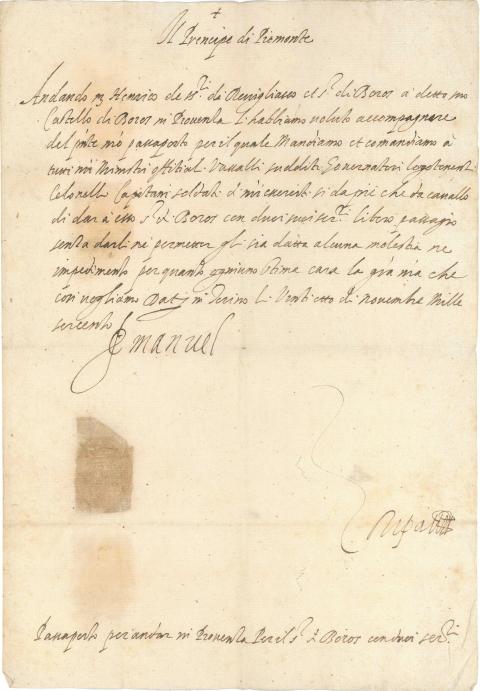 Il Prencipe di Piemonte
Andando m Henrico de ss.ri da Revigliasco et s.r di Boros a detto suo
Castello di Boros in Provenza l'habbiamo voluto accompagnare
del p'nte n'ro passaporto per il quale Mandiamo et comandiamo à
tutti n'ri Ministri offitiali Vassalli sudditi Governatori logotenenti
Colonelli Capitani soldati d' n'ri eserciti si da pié che da cavallo
di dar à esso s.r di Boros con duei suoi ser.ri libero passagio
senza darli ne permetter gli sia datta alcuna molestia ne
impedimento per quanto ogniuno stima cara la gra n'ra che
cosi vogliamo Dat. in Torino li Vent'otto di novembre Mille
seicento
Emanuel
Passaporto per andar in Provenza Per il s.r di Boros con duei ser.ri